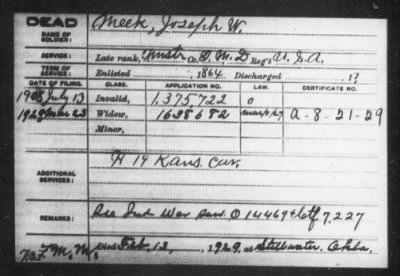 DEAD
NAME OF SOLDIER: Meek, Joseph W.
SERVICE: Late rank, Co. Q. M. D Reg't U.S.A
TERM OF SERVICE: Enlisted 1864 Discharged , 1
DATE OF FILING. CLASS. APPLICATION NO. LAW. CERTIFICATE NO.
1908 July 13 Invalid, 1,375,722 0
1929 Mar 23 Widow, 1638682 A-8-21-29
Minor,
ADDITIONAL SERVICES: H 19 Kans. Cav.
REMARKS: See Ind War Surv. O 14469 + Ctf 7,227
Died Feb. 12, 1929, at Stillwater, Okla,